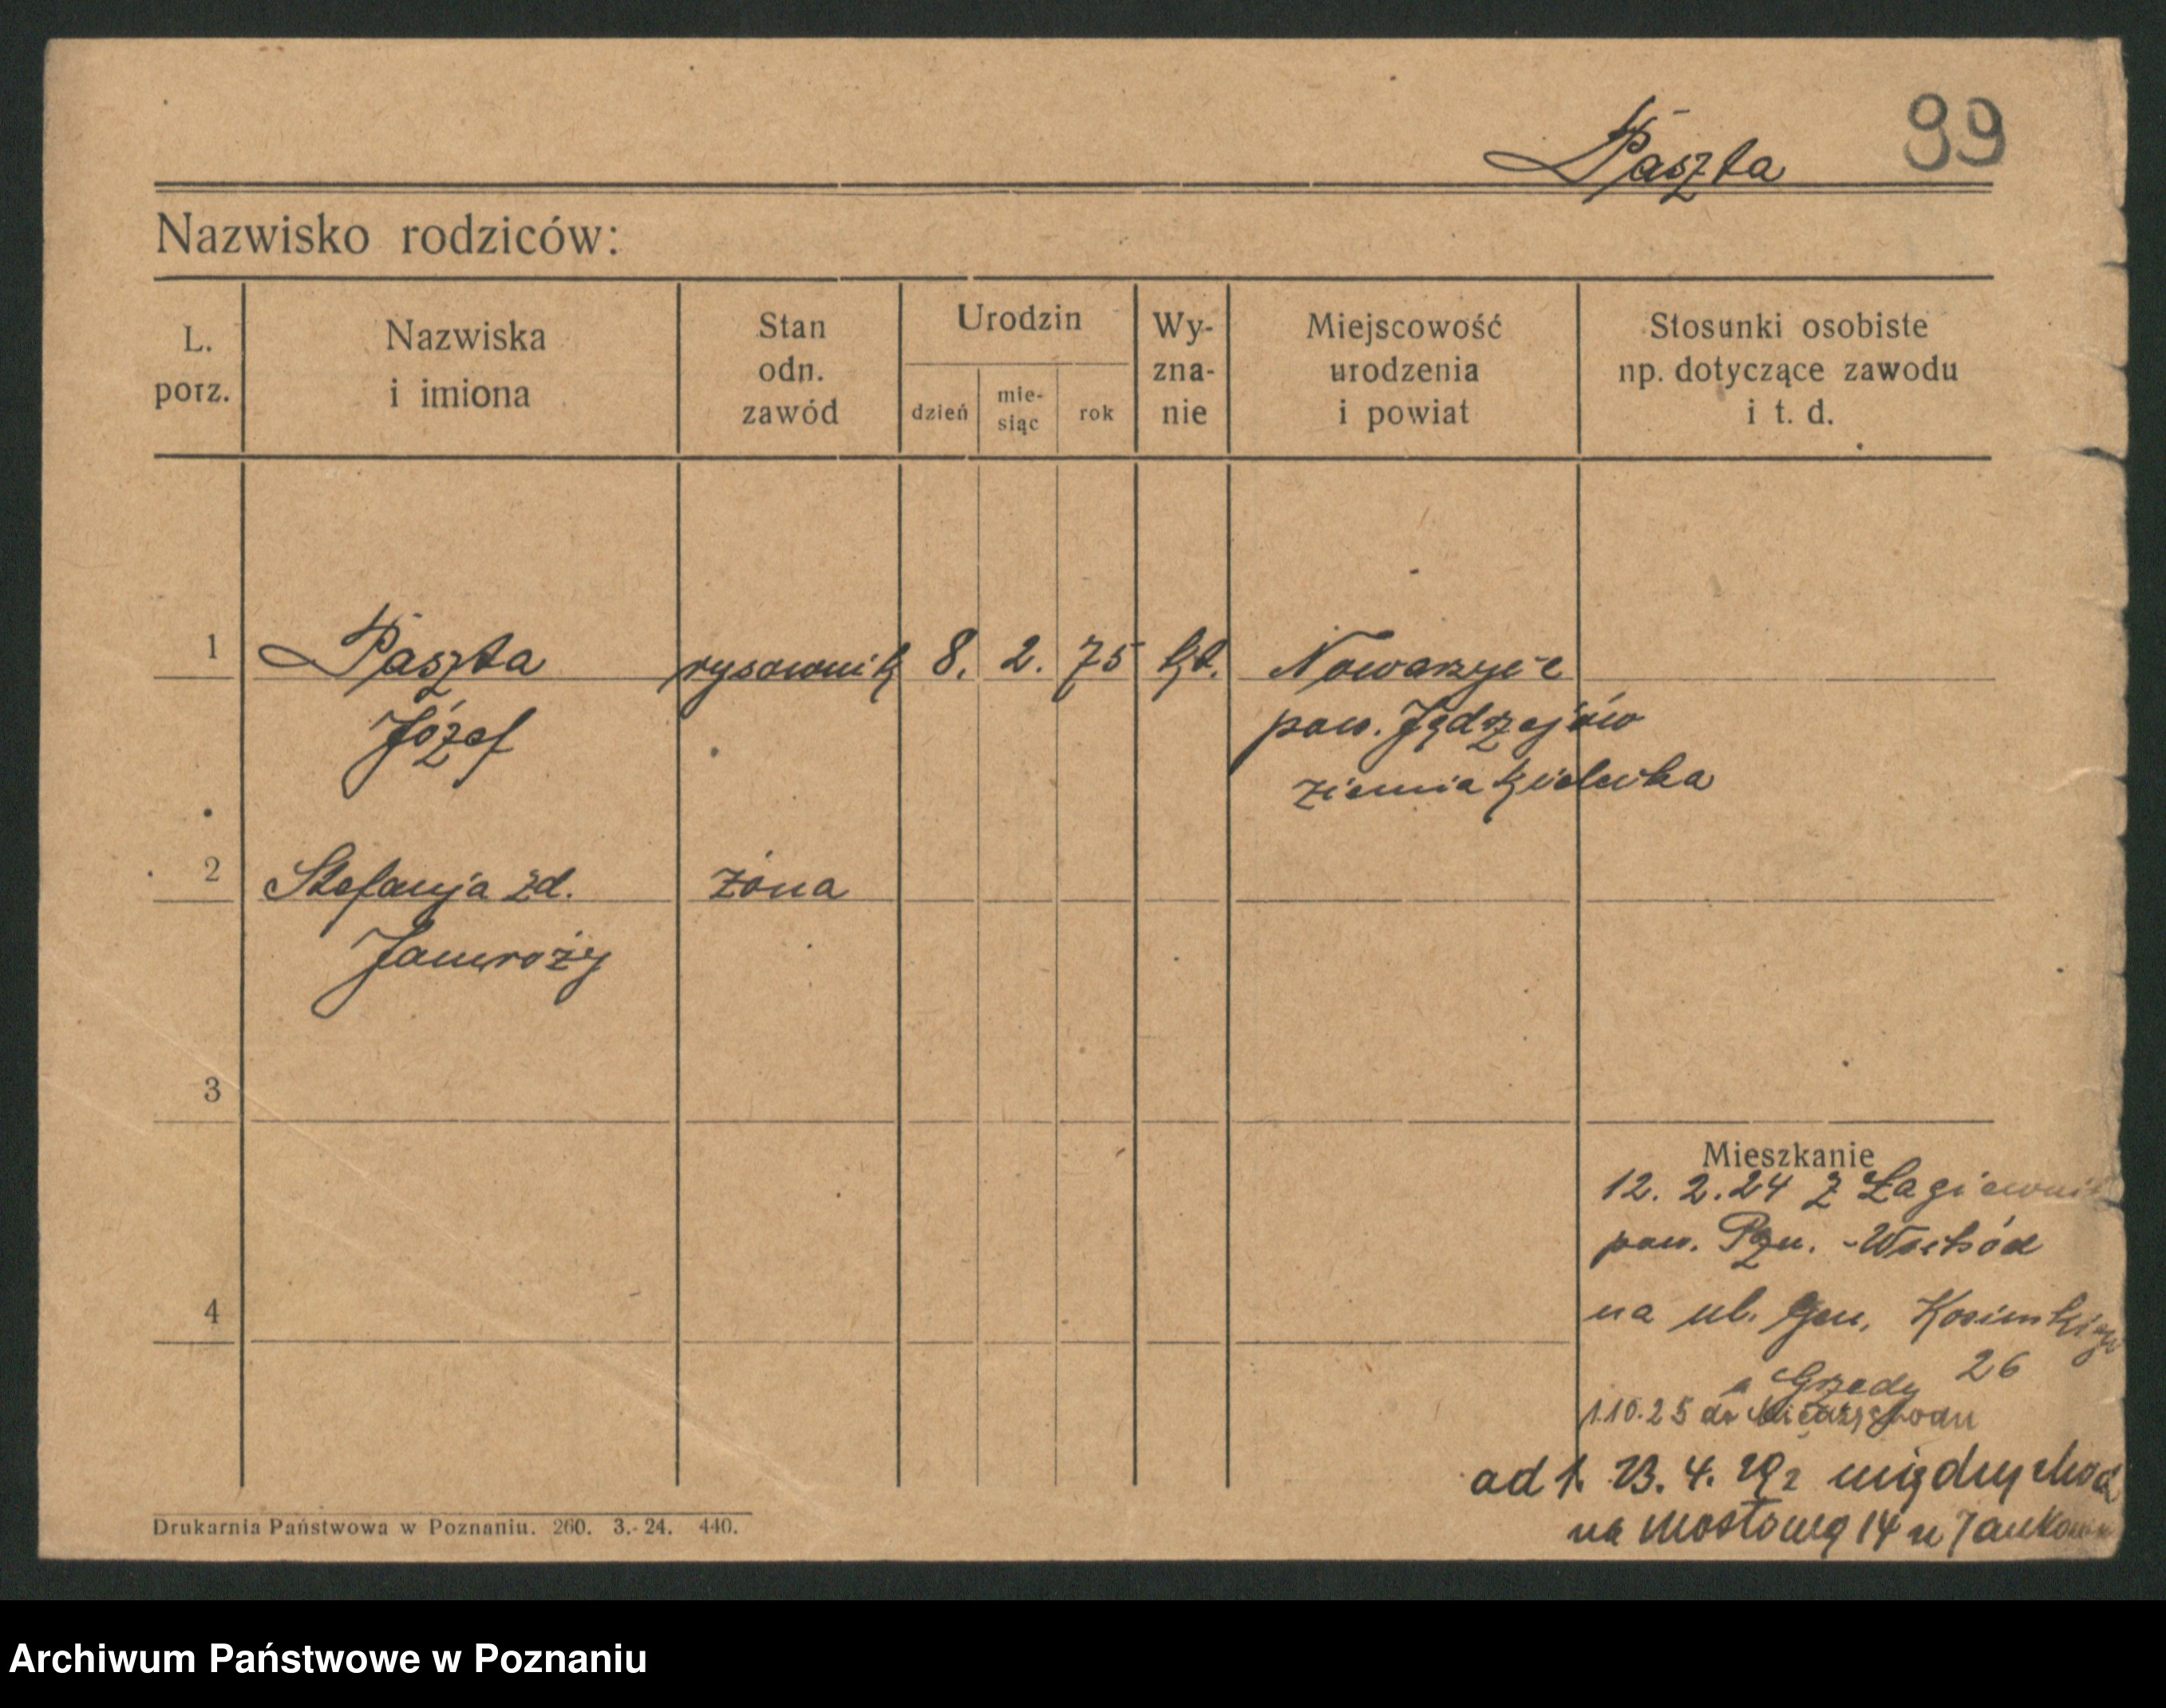 Paszta 99
Nazwisko rodziców:
L. porz.
Nazwiska i imiona
Stan odn. zawód
Urodzin
dzień
mie-siąc
rok
Wy-zna-nie
Miejscowość urodzenia i powiat
Stosunki osobiste np. dotyczące zawodu i t. d.
1 Paszta rysownik 8. 2. 75 kt.
Józef pow. Jędrzejów
ziemia kielecka
2 Stefanja zd. żona
Jamroży
3
Mieszkanie
12. 2. 24 z Łagiewnik
pow. Pzn. - Wschód
4
na ul. Gen. Kosińskiego
u Grzedy 26
1.10.25 do Międzychodu
od 1. 4. międzychod
na mostową 14 u
Drukarnia Państwowa w Poznaniu. 260. 3.-24. 440.
Archiwum Państwowe w Poznaniu